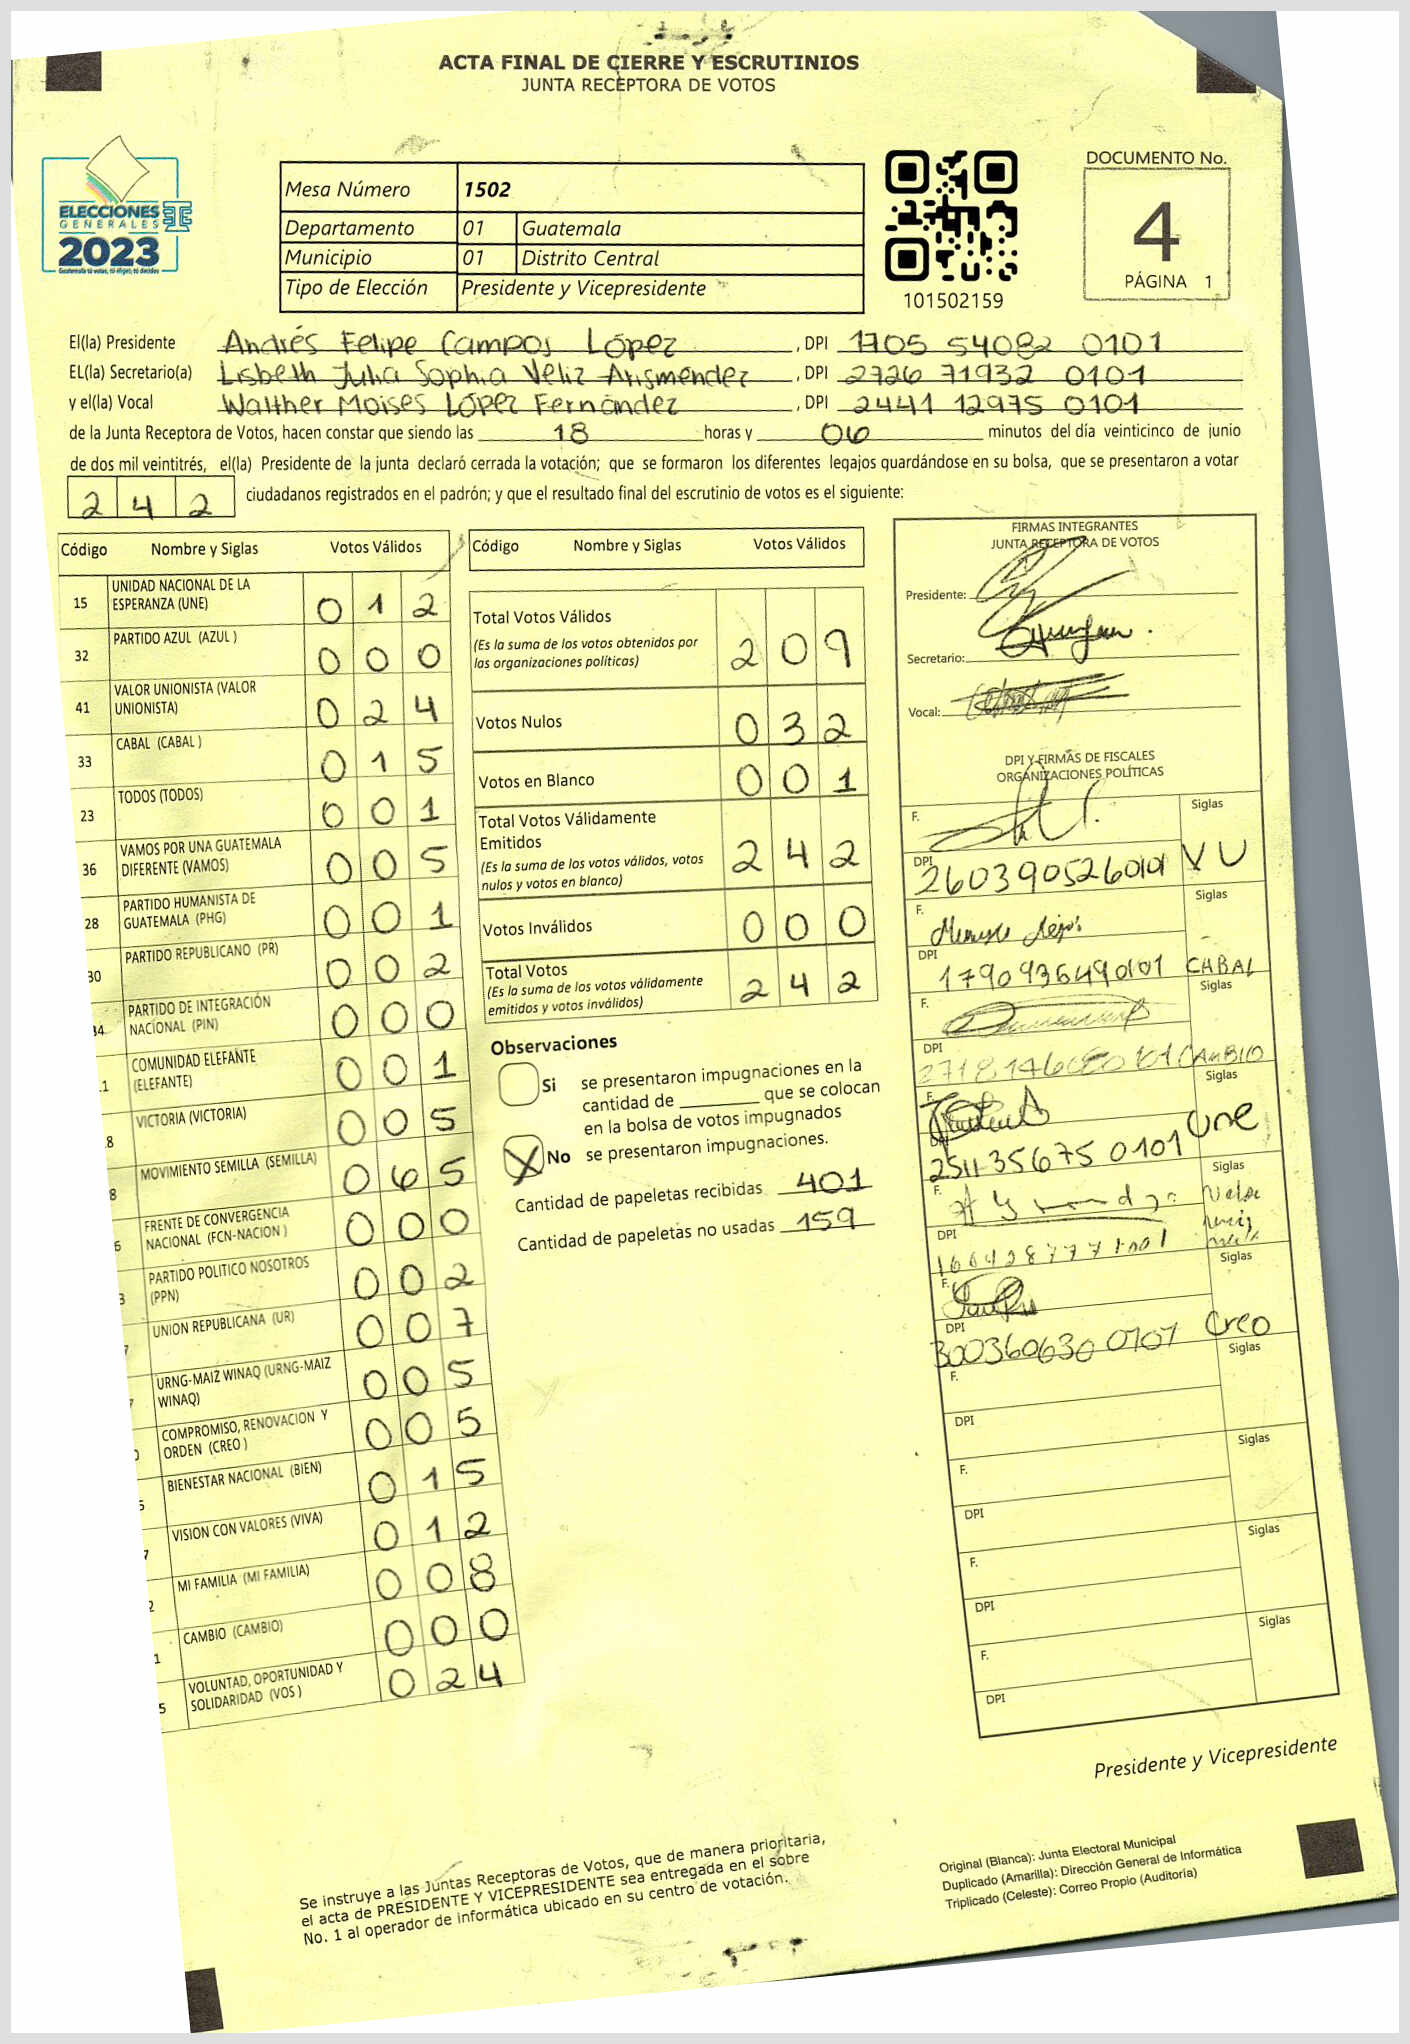 ACTA FINAL DE CIERRE Y ESCRUTINIOS
JUNTA RECEPTORA DE VOTOS
ELECCIONES
GENERALES
2023
Guatemala tú votas, tú eliges, tú decides
Mesa Número 1502
Departamento 01 Guatemala
Municipio 01 Distrito Central
Tipo de Elección Presidente y Vicepresidente
101502159
DOCUMENTO No.
4
PÁGINA 1
El(la) Presidente Andrés Felipe Campos López , DPI 1705 54082 0101
EL(la) Secretario(a) Lisbeth Julia Sophia Veliz Arismendez , DPI 2726 71932 0101
y el(la) Vocal Walther Moises López Fernández , DPI 2441 12975 0101
de la Junta Receptora de Votos, hacen constar que siendo las 18 horas y 06 minutos del día veinticinco de junio
de dos mil veintitrés, el(la) Presidente de la junta declaró cerrada la votación; que se formaron los diferentes legajos guardándose en su bolsa, que se presentaron a votar
242 ciudadanos registrados en el padrón; y que el resultado final del escrutinio de votos es el siguiente:
Código Nombre y Siglas Votos Válidos
15 UNIDAD NACIONAL DE LA ESPERANZA (UNE) 012
32 PARTIDO AZUL (AZUL ) 000
41 VALOR UNIONISTA (VALOR UNIONISTA) 024
33 CABAL (CABAL ) 015
23 TODOS (TODOS) 001
36 VAMOS POR UNA GUATEMALA DIFERENTE (VAMOS) 005
28 PARTIDO HUMANISTA DE GUATEMALA (PHG) 001
30 PARTIDO REPUBLICANO (PR) 002
34 PARTIDO DE INTEGRACIÓN NACIONAL (PIN) 000
1 COMUNIDAD ELEFANTE (ELEFANTE) 001
8 VICTORIA (VICTORIA) 005
8 MOVIMIENTO SEMILLA (SEMILLA) 065
6 FRENTE DE CONVERGENCIA NACIONAL (FCN-NACION ) 000
3 PARTIDO POLITICO NOSOTROS (PPN) 002
7 UNION REPUBLICANA (UR) 007
7 URNG-MAIZ WINAQ (URNG-MAIZ WINAQ) 005
0 COMPROMISO, RENOVACION Y ORDEN (CREO ) 005
5 BIENESTAR NACIONAL (BIEN) 015
7 VISION CON VALORES (VIVA) 012
2 MI FAMILIA (MI FAMILIA) 008
1 CAMBIO (CAMBIO) 000
5 VOLUNTAD, OPORTUNIDAD Y SOLIDARIDAD (VOS ) 024
Código Nombre y Siglas Votos Válidos
Total Votos Válidos 209
(Es la suma de los votos obtenidos por
las organizaciones políticas)
Votos Nulos 032
Votos en Blanco 001
Total Votos Válidamente
Emitidos 242
(Es la suma de los votos válidos, votos
nulos y votos en blanco)
Votos Inválidos 000
Total Votos 242
(Es la suma de los votos válidamente
emitidos y votos inválidos)
Observaciones
Si se presentaron impugnaciones en la
cantidad de ________ que se colocan
en la bolsa de votos impugnados
X No se presentaron impugnaciones.
Cantidad de papeletas recibidas 401
Cantidad de papeletas no usadas 159
FIRMAS INTEGRANTES
JUNTA RECEPTORA DE VOTOS
Presidente:
Secretario:
Vocal:
DPI Y FIRMAS DE FISCALES
ORGANIZACIONES POLÍTICAS
F. Siglas
DPI 2603905260101 VU
F. Siglas
DPI 1790936490101 CABAL
F. Siglas
DPI CAMBIO
F. Siglas
DPI 251135675 0101 Une
F. Siglas
DPI
F. Siglas
DPI 300360630 0101 Creo
F. Siglas
DPI
F. Siglas
DPI
F. Siglas
DPI
F. Siglas
DPI
Presidente y Vicepresidente
Se instruye a las Juntas Receptoras de Votos, que de manera prioritaria,
el acta de PRESIDENTE Y VICEPRESIDENTE sea entregada en el sobre
No. 1 al operador de informática ubicado en su centro de votación.
Original (Blanca): Junta Electoral Municipal
Duplicado (Amarilla): Dirección General de Informática
Triplicado (Celeste): Correo Propio (Auditoría)